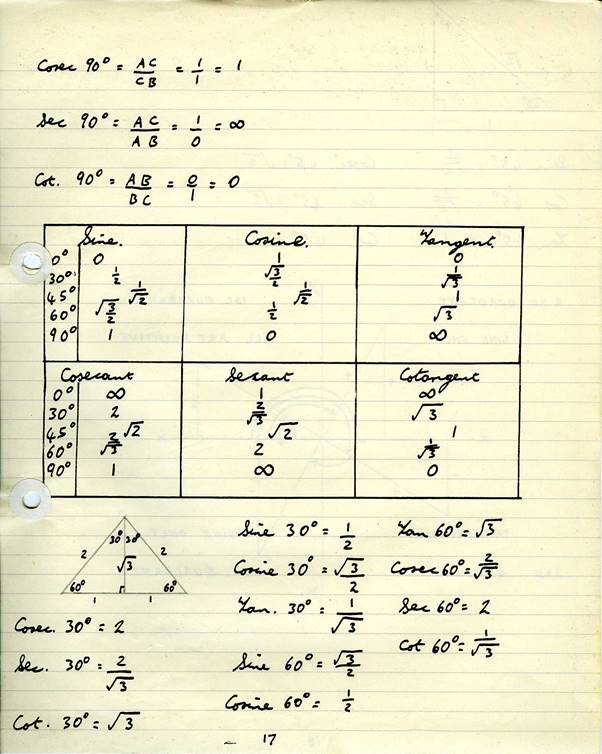 Cosec 90° = AC/CB = 1/1 = 1
Sec 90° = AC/AB = 1/0 = ∞
Cot. 90° = AB/BC = 0/1 = 0
Sine. Cosine. Tangent.
0° 0 1 0
30° 1/2 √3/2 1/√3
45° 1/√2 1/√2 1
60° √3/2 1/2 √3
90° 1 0 ∞
Cosecant Sexant Cotangent
0° ∞ 1 ∞
30° 2 2/√3 √3
45° √2 √2 1
60° 2/√3 2 1/√3
90° 1 ∞ 0
30° 30°
2 √3 2
60° 60°
1 1
Cosec. 30° = 2
Sec. 30° = 2/√3
Cot. 30° = √3
Sine 30° = 1/2
Cosine 30° = √3/2
Tan. 30° = 1/√3
Sine 60° = √3/2
Cosine 60° = 1/2
Tan 60° = √3
Cosec 60° = 2/√3
Sec 60° = 2
Cot 60° = 1/√3
17